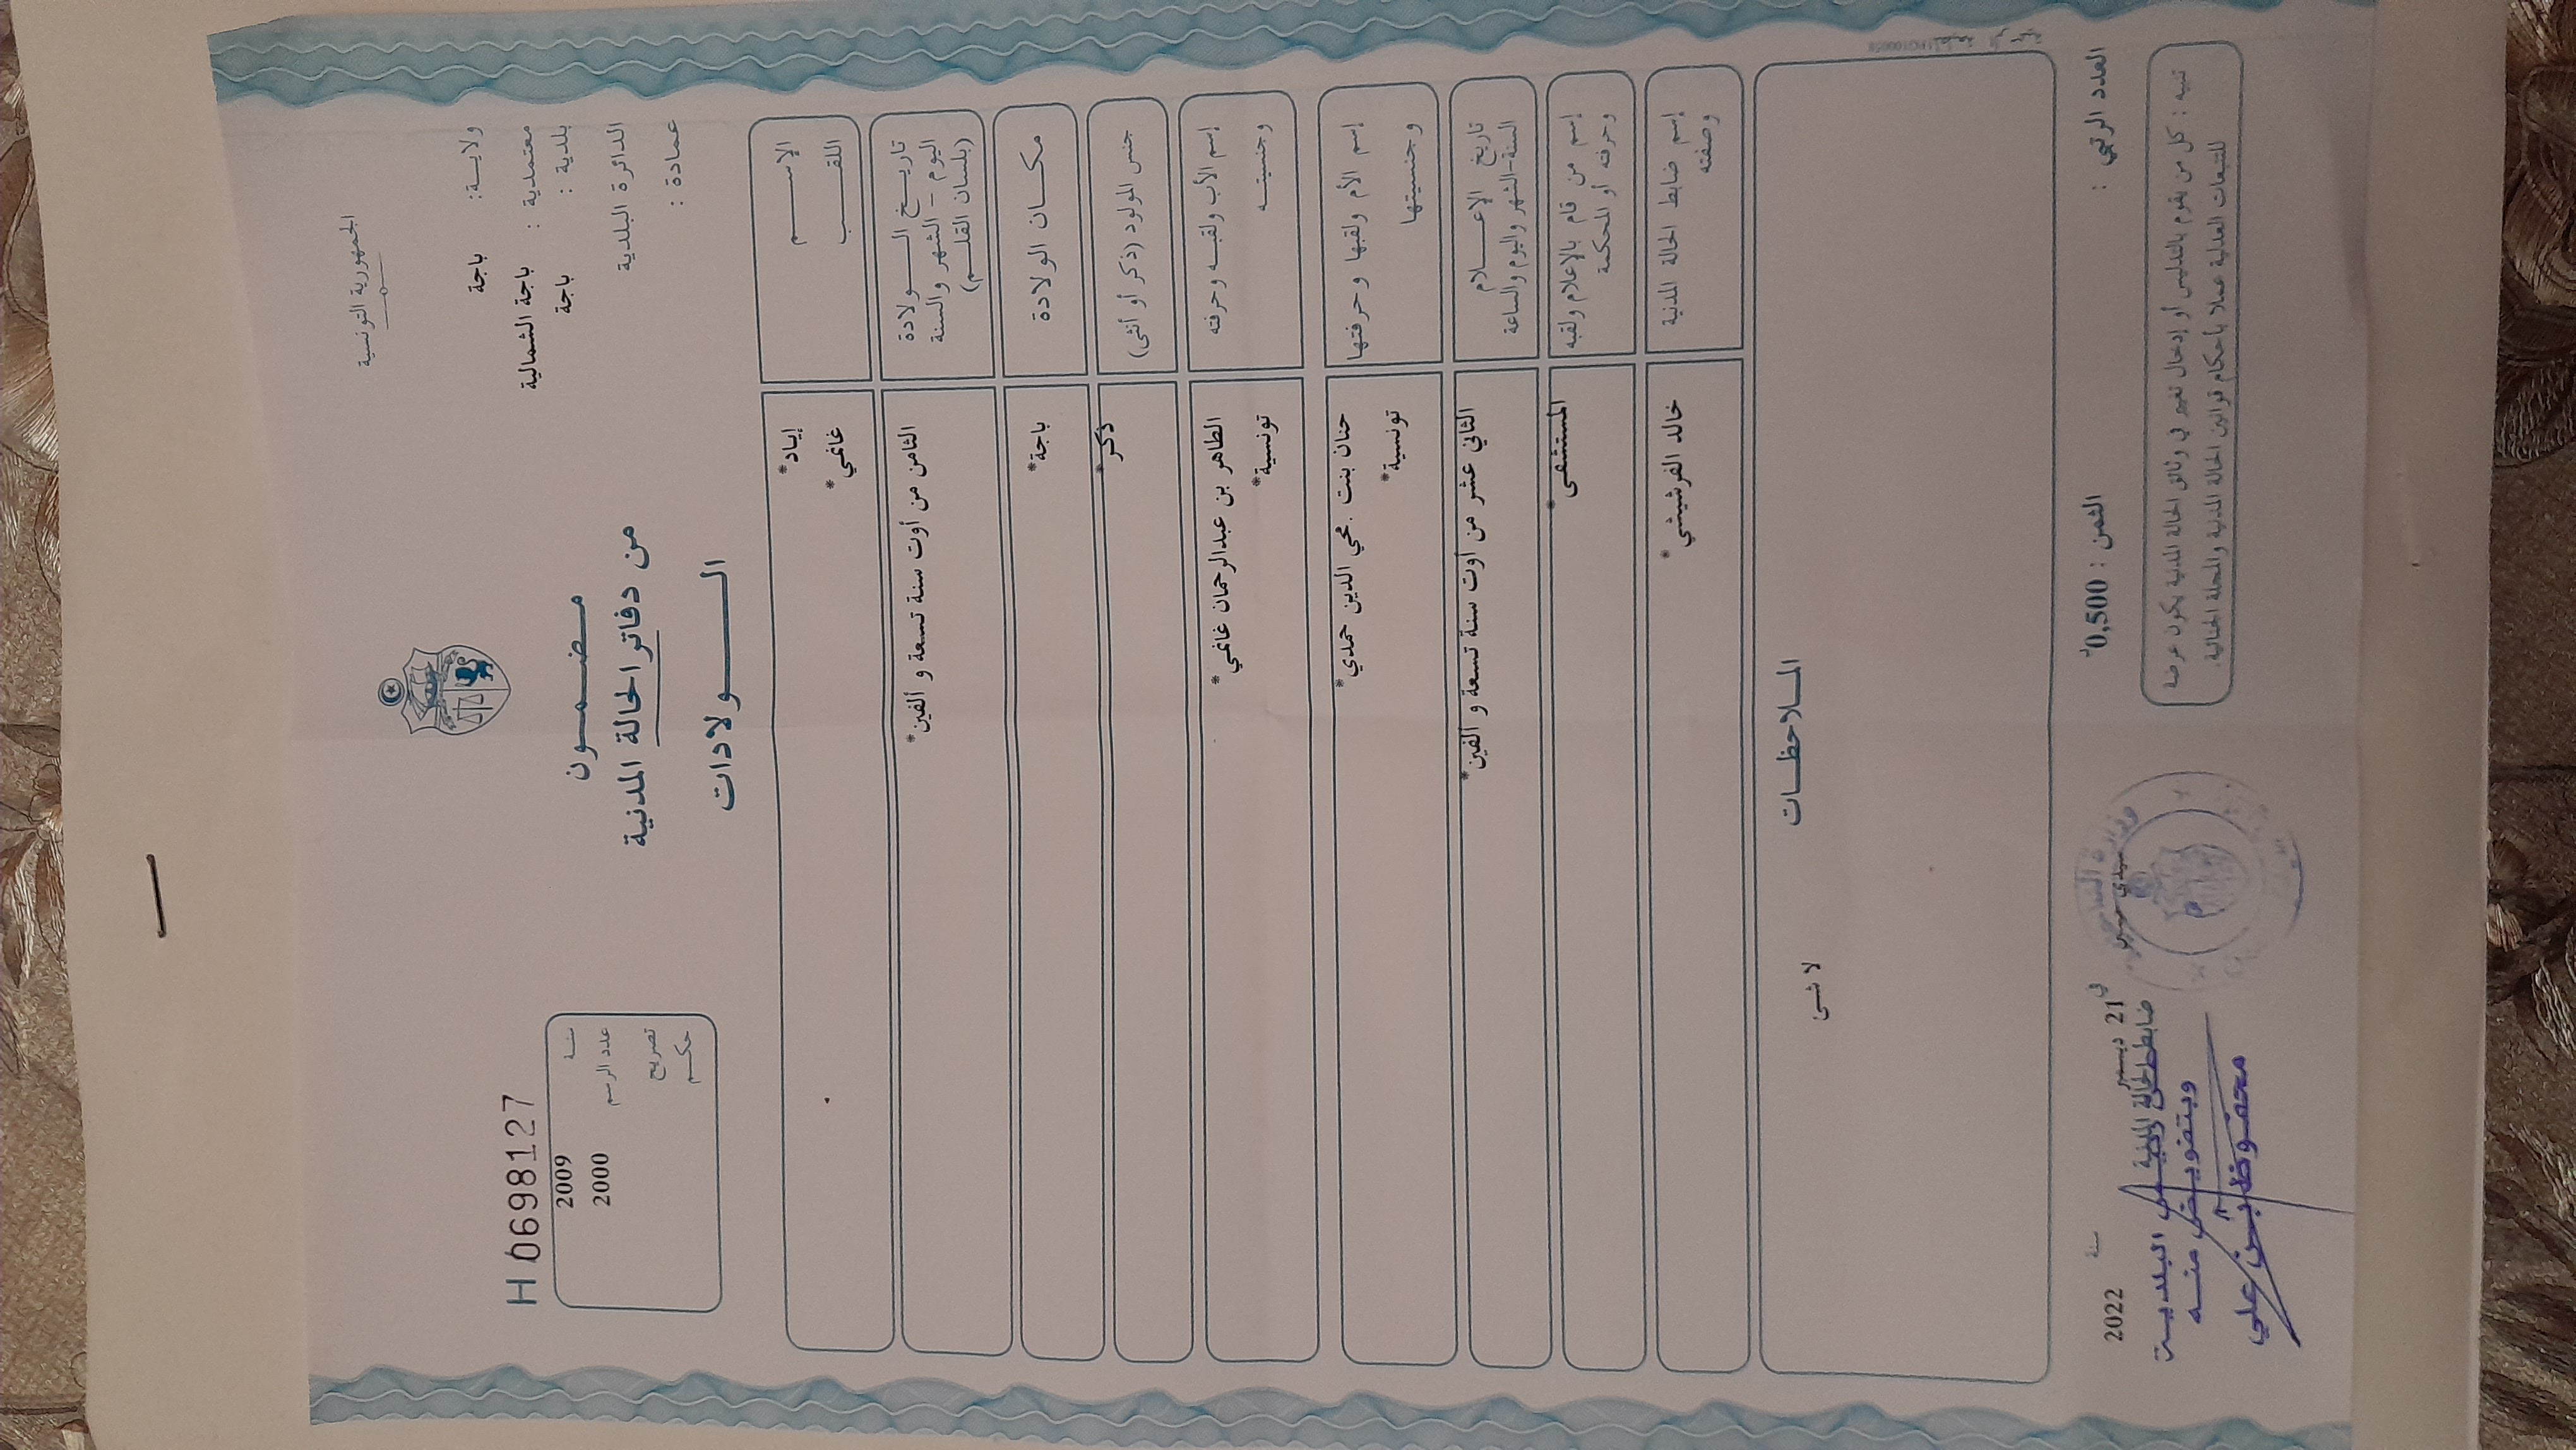 الجمهورية التونسية
ولاية: باجة
معتمدية : باجة الشمالية
بلدية : باجة
الدائرة البلدية
عمادة :
H 0698127
سنة 2009
عدد الرسم 2000
تصريح
حكم
مضمون
من دفاتر الحالة المدنية
الولادات
الإسم إياد*
اللقب غانمي*
تاريخ الولادة
اليوم - الشهر والسنة
(بلسان القلم)
الثامن من أوت سنة تسعة و ألفين*
مكان الولادة باجة*
جنس المولود (ذكر أو أنثى) ذكر*
إسم الأب ولقبه وحرفته الطاهر بن عبدالرحمان غانمي*
وجنسيته تونسية*
إسم الأم ولقبها وحرفتها حنان بنت محي الدين حمدي*
وجنسيتها تونسية*
تاريخ الإعلام
السنة-الشهر واليوم والساعة
الثاني عشر من أوت سنة تسعة و ألفين*
إسم من قام بالإعلام ولقبه
وحرفته أو المحكمة
المستشفى*
إسم ضابط الحالة المدنية
وصفته
خالد الفرشيشي*
الملاحظات
لا شى
العدد الرتبي :
الثمن : 0,500د
في 21 ديسمبر سنة 2022
ضابط الحالة المدنية
عن رئيس البلدية
وبتفويض منه
محفوظ بن علي
تنبيه : كل من يقوم بالتدليس أو إدخال تغيير في وثائق الحالة المدنية يكون عرضة
للتتبعات العدلية عملا بأحكام قوانين الحالة المدنية والمجلة الجنائية.